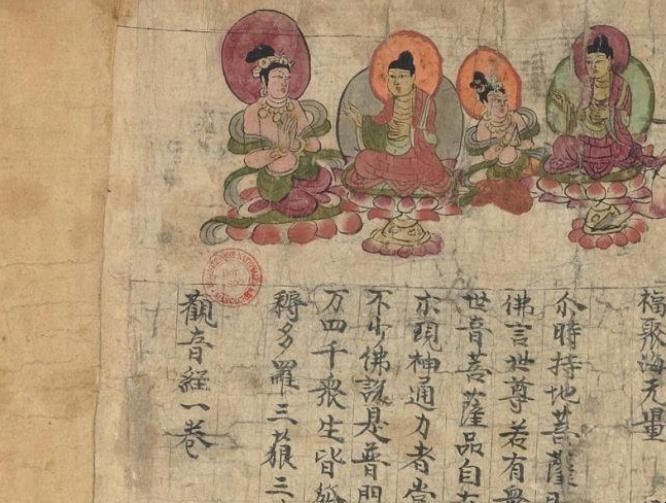 福聚海无量
尒時持地菩薩
佛言世尊若有衆
世音菩薩品自
示現神通力者當
不少佛說是普門
万四千衆生皆發
耨多羅三藐三
觀音經一卷